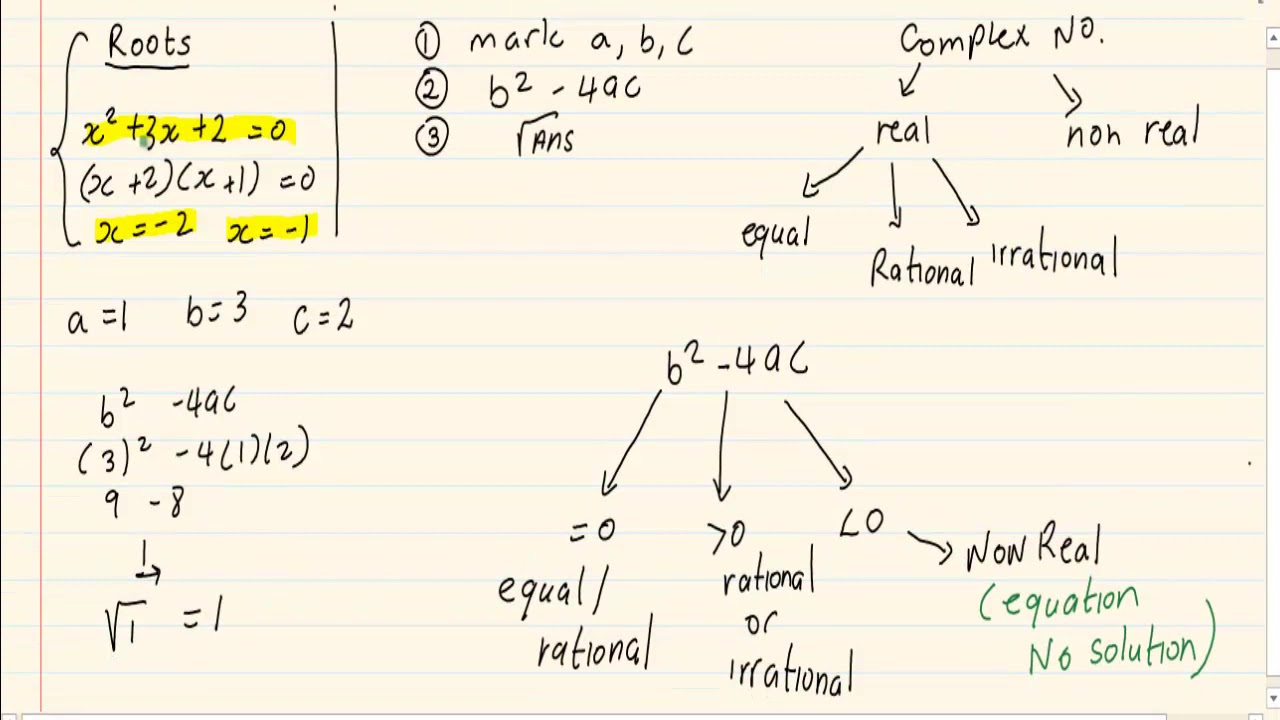 Roots
x² + 3x + 2 = 0
(x + 2)(x + 1) = 0
x = -2 x = -1
a = 1 b = 3 c = 2
b² - 4ac
(3)² - 4(1)(2)
9 - 8
1
√1 = 1
① mark a, b, c
② b² - 4ac
③ √Ans
Complex No.
real non real
equal Rational irrational
b² - 4ac
= 0 > 0 < 0
equal/
rational
rational
or
irrational
Non Real
(equation
No solution)